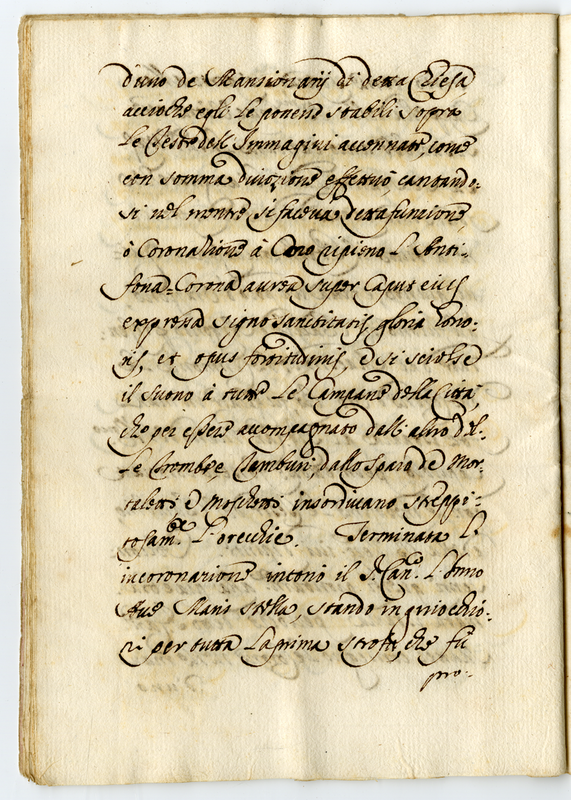 d'uno de Mansionarij di detta Chiesa
accioche egli le ponesse stabili sopra
le Teste dell'Immagini accennate, come
con somma divozione effettuò cantando-
si nel mentre si faceva detta funzione,
ò Coronazione à Coro ripieno l'Anti-
fona = Corona aurea super Caput eius
expressa signo sanctitatis, gloria hono-
ris, et opus fortitudinis, e si sciolse
il suono à tutte le Campane della Città,
che per essere accompagnato dall'altro del-
le Trombe, e Tamburi, dallo sparo de Mor-
taletti e Moschetti insordivano streppi-
tosam.te l'orecchie. Terminata l'
incoronazione intonò il S.r Can.co l'Inno
Ave Maris Stella, stando inginocchio-
ni per tutta la prima strofe, che fù
pro-